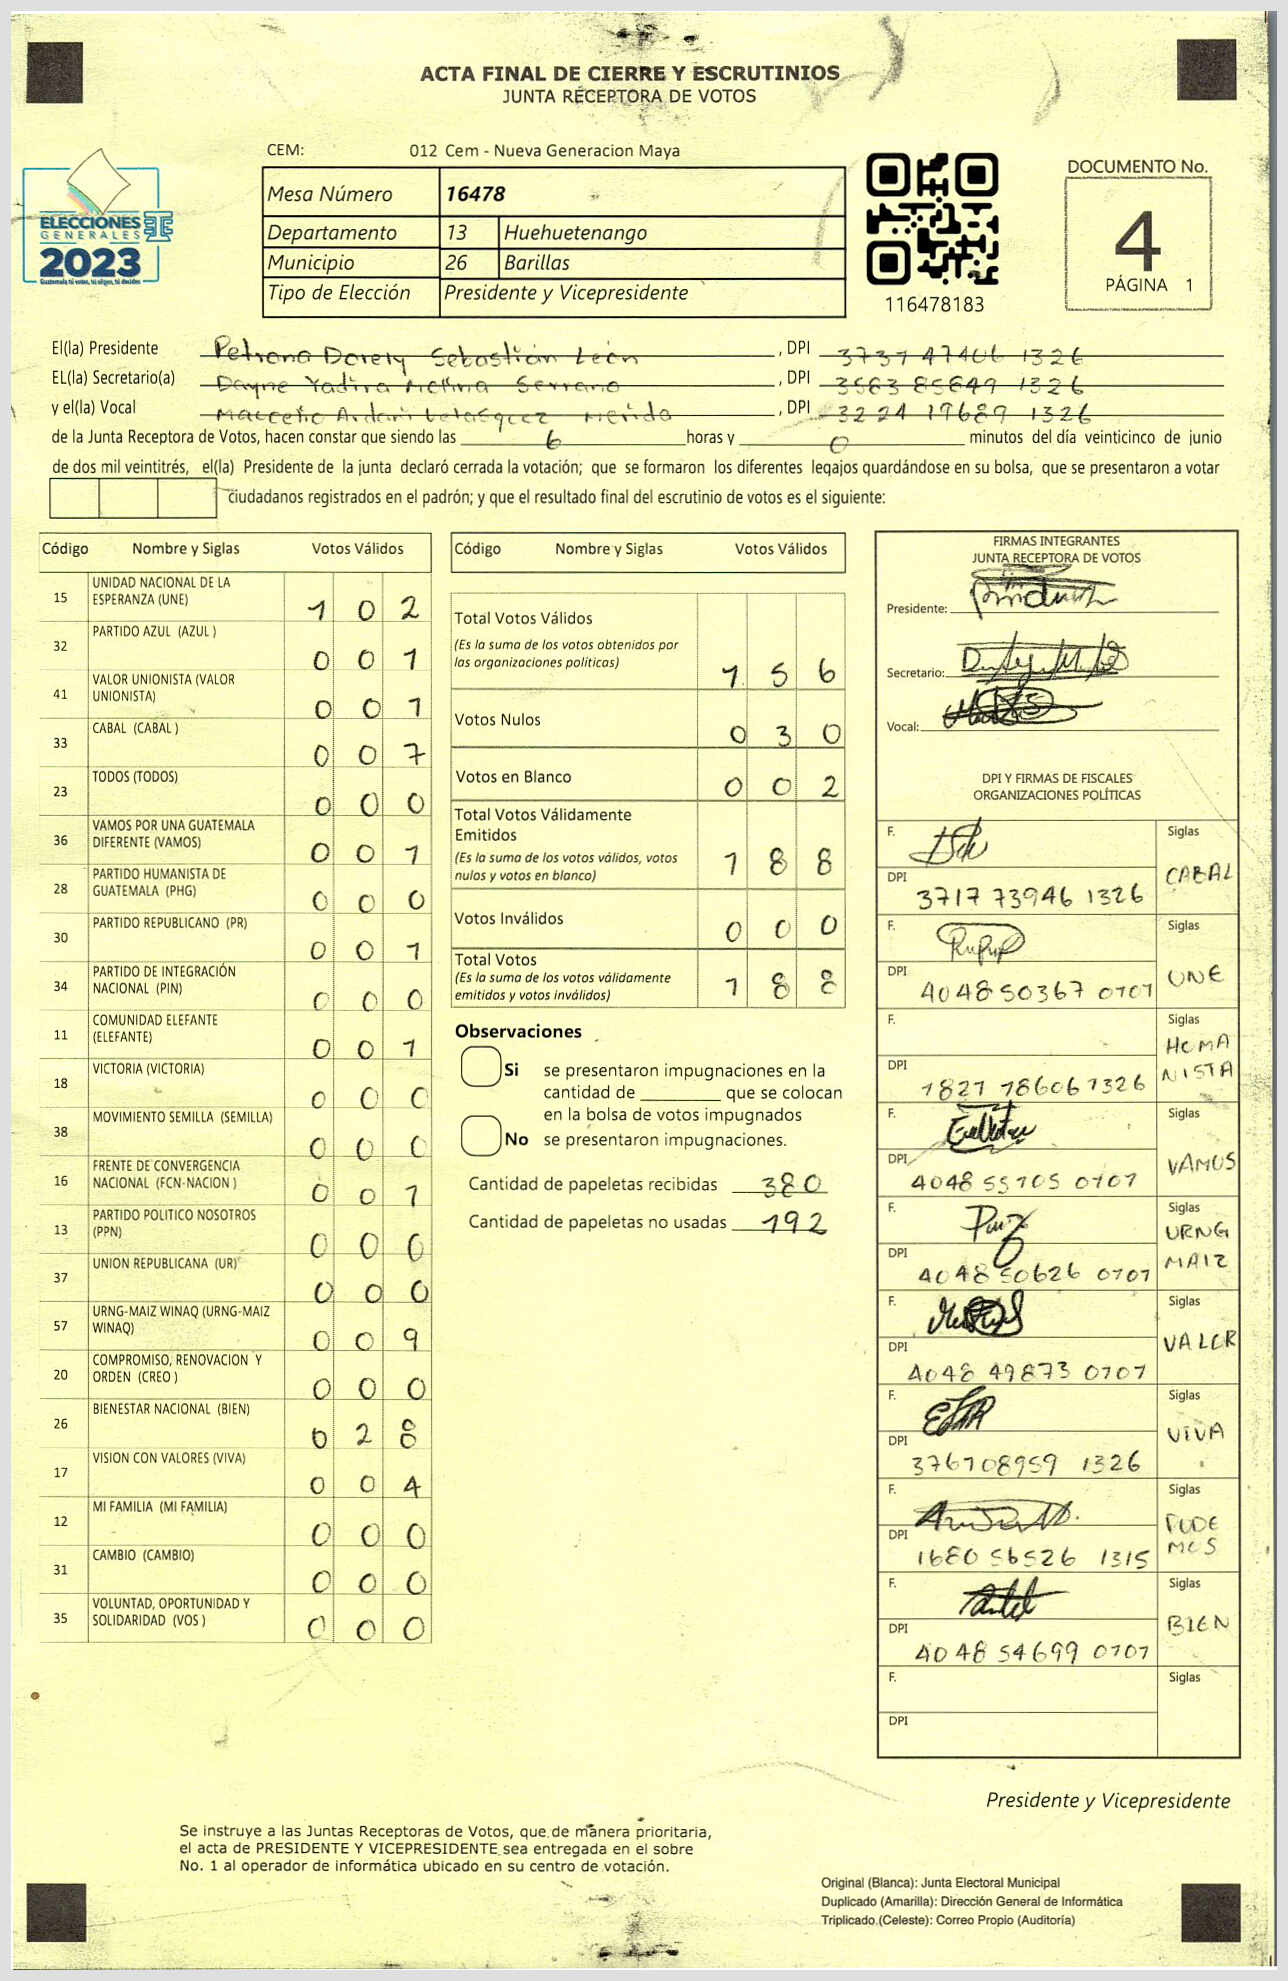 ACTA FINAL DE CIERRE Y ESCRUTINIOS
JUNTA RECEPTORA DE VOTOS
CEM: 012 Cem - Nueva Generacion Maya
Mesa Número 16478
Departamento 13 Huehuetenango
Municipio 26 Barillas
Tipo de Elección Presidente y Vicepresidente
ELECCIONES
GENERALES
2023
Guatemala tú votas, tú eliges, tú decides
116478183
DOCUMENTO No.
4
PÁGINA 1
El(la) Presidente Petrona Dorely Sebastián León, DPI 3731 47406 1326
EL(la) Secretario(a) Dayne Yadira Molina Serrano, DPI 3583 85849 1326
y el(la) Vocal Velasquez Merida, DPI 3224 19689 1326
de la Junta Receptora de Votos, hacen constar que siendo las 6 horas y 0 minutos del día veinticinco de junio
de dos mil veintitrés, el(la) Presidente de la junta declaró cerrada la votación; que se formaron los diferentes legajos guardándose en su bolsa, que se presentaron a votar
ciudadanos registrados en el padrón; y que el resultado final del escrutinio de votos es el siguiente:
Código Nombre y Siglas Votos Válidos
15 UNIDAD NACIONAL DE LA ESPERANZA (UNE) 1 0 2
32 PARTIDO AZUL (AZUL ) 0 0 1
41 VALOR UNIONISTA (VALOR UNIONISTA) 0 0 1
33 CABAL (CABAL ) 0 0 7
23 TODOS (TODOS) 0 0 0
36 VAMOS POR UNA GUATEMALA DIFERENTE (VAMOS) 0 0 1
28 PARTIDO HUMANISTA DE GUATEMALA (PHG) 0 0 0
30 PARTIDO REPUBLICANO (PR) 0 0 1
34 PARTIDO DE INTEGRACIÓN NACIONAL (PIN) 0 0 0
11 COMUNIDAD ELEFANTE (ELEFANTE) 0 0 1
18 VICTORIA (VICTORIA) 0 0 0
38 MOVIMIENTO SEMILLA (SEMILLA) 0 0 0
16 FRENTE DE CONVERGENCIA NACIONAL (FCN-NACION ) 0 0 1
13 PARTIDO POLITICO NOSOTROS (PPN) 0 0 0
37 UNION REPUBLICANA (UR) 0 0 0
57 URNG-MAIZ WINAQ (URNG-MAIZ WINAQ) 0 0 9
20 COMPROMISO, RENOVACION Y ORDEN (CREO ) 0 0 0
26 BIENESTAR NACIONAL (BIEN) 0 2 8
17 VISION CON VALORES (VIVA) 0 0 4
12 MI FAMILIA (MI FAMILIA) 0 0 0
31 CAMBIO (CAMBIO) 0 0 0
35 VOLUNTAD, OPORTUNIDAD Y SOLIDARIDAD (VOS ) 0 0 0
Código Nombre y Siglas Votos Válidos
Total Votos Válidos
(Es la suma de los votos obtenidos por las organizaciones políticas) 1 5 6
Votos Nulos 0 3 0
Votos en Blanco 0 0 2
Total Votos Válidamente Emitidos
(Es la suma de los votos válidos, votos nulos y votos en blanco) 1 8 8
Votos Inválidos 0 0 0
Total Votos
(Es la suma de los votos válidamente emitidos y votos inválidos) 1 8 8
Observaciones
Si se presentaron impugnaciones en la
cantidad de ________ que se colocan
en la bolsa de votos impugnados
No se presentaron impugnaciones.
Cantidad de papeletas recibidas 380
Cantidad de papeletas no usadas 192
FIRMAS INTEGRANTES
JUNTA RECEPTORA DE VOTOS
Presidente:
Secretario:
Vocal:
DPI Y FIRMAS DE FISCALES
ORGANIZACIONES POLÍTICAS
F. Siglas
DPI 3717 73946 1326 CABAL
F. Siglas
DPI 4048 50367 0707 UNE
F. Siglas
HUMA
DPI NISTA
1827 78606 1326
F. Siglas
DPI 4048 55705 0707 VAMOS
F. Siglas
URNG
DPI MAIZ
4048 50626 0707
F. Siglas
DPI 4048 49873 0707 VALOR
F. Siglas
DPI 376708959 1326 VIVA
F. Siglas
PODE
DPI MOS
1680 56526 1315
F. Siglas
DPI 4048 54699 0707 BIEN
F. Siglas
DPI
Presidente y Vicepresidente
Se instruye a las Juntas Receptoras de Votos, que de manera prioritaria,
el acta de PRESIDENTE Y VICEPRESIDENTE sea entregada en el sobre
No. 1 al operador de informática ubicado en su centro de votación.
Original (Blanca): Junta Electoral Municipal
Duplicado (Amarilla): Dirección General de Informática
Triplicado (Celeste): Correo Propio (Auditoría)